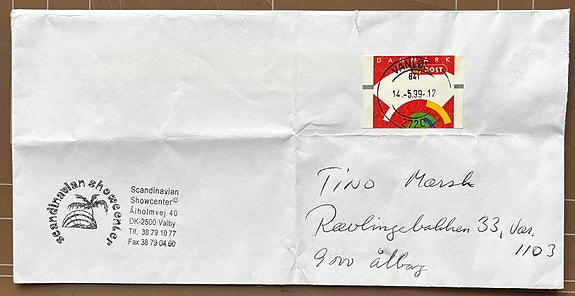 DANMARK
POST
VANLØSE
14.-5.99-12
2720
scandinavian showcenter
Scandinavian
Showcenter©
Ålholmvej 40
DK-2500 Valby
Tlf. 38 79 10 77
Fax 38 79 04 60
Tino Marsk
Rævlingebakken 33, Vær.
1103
9000 Ålborg